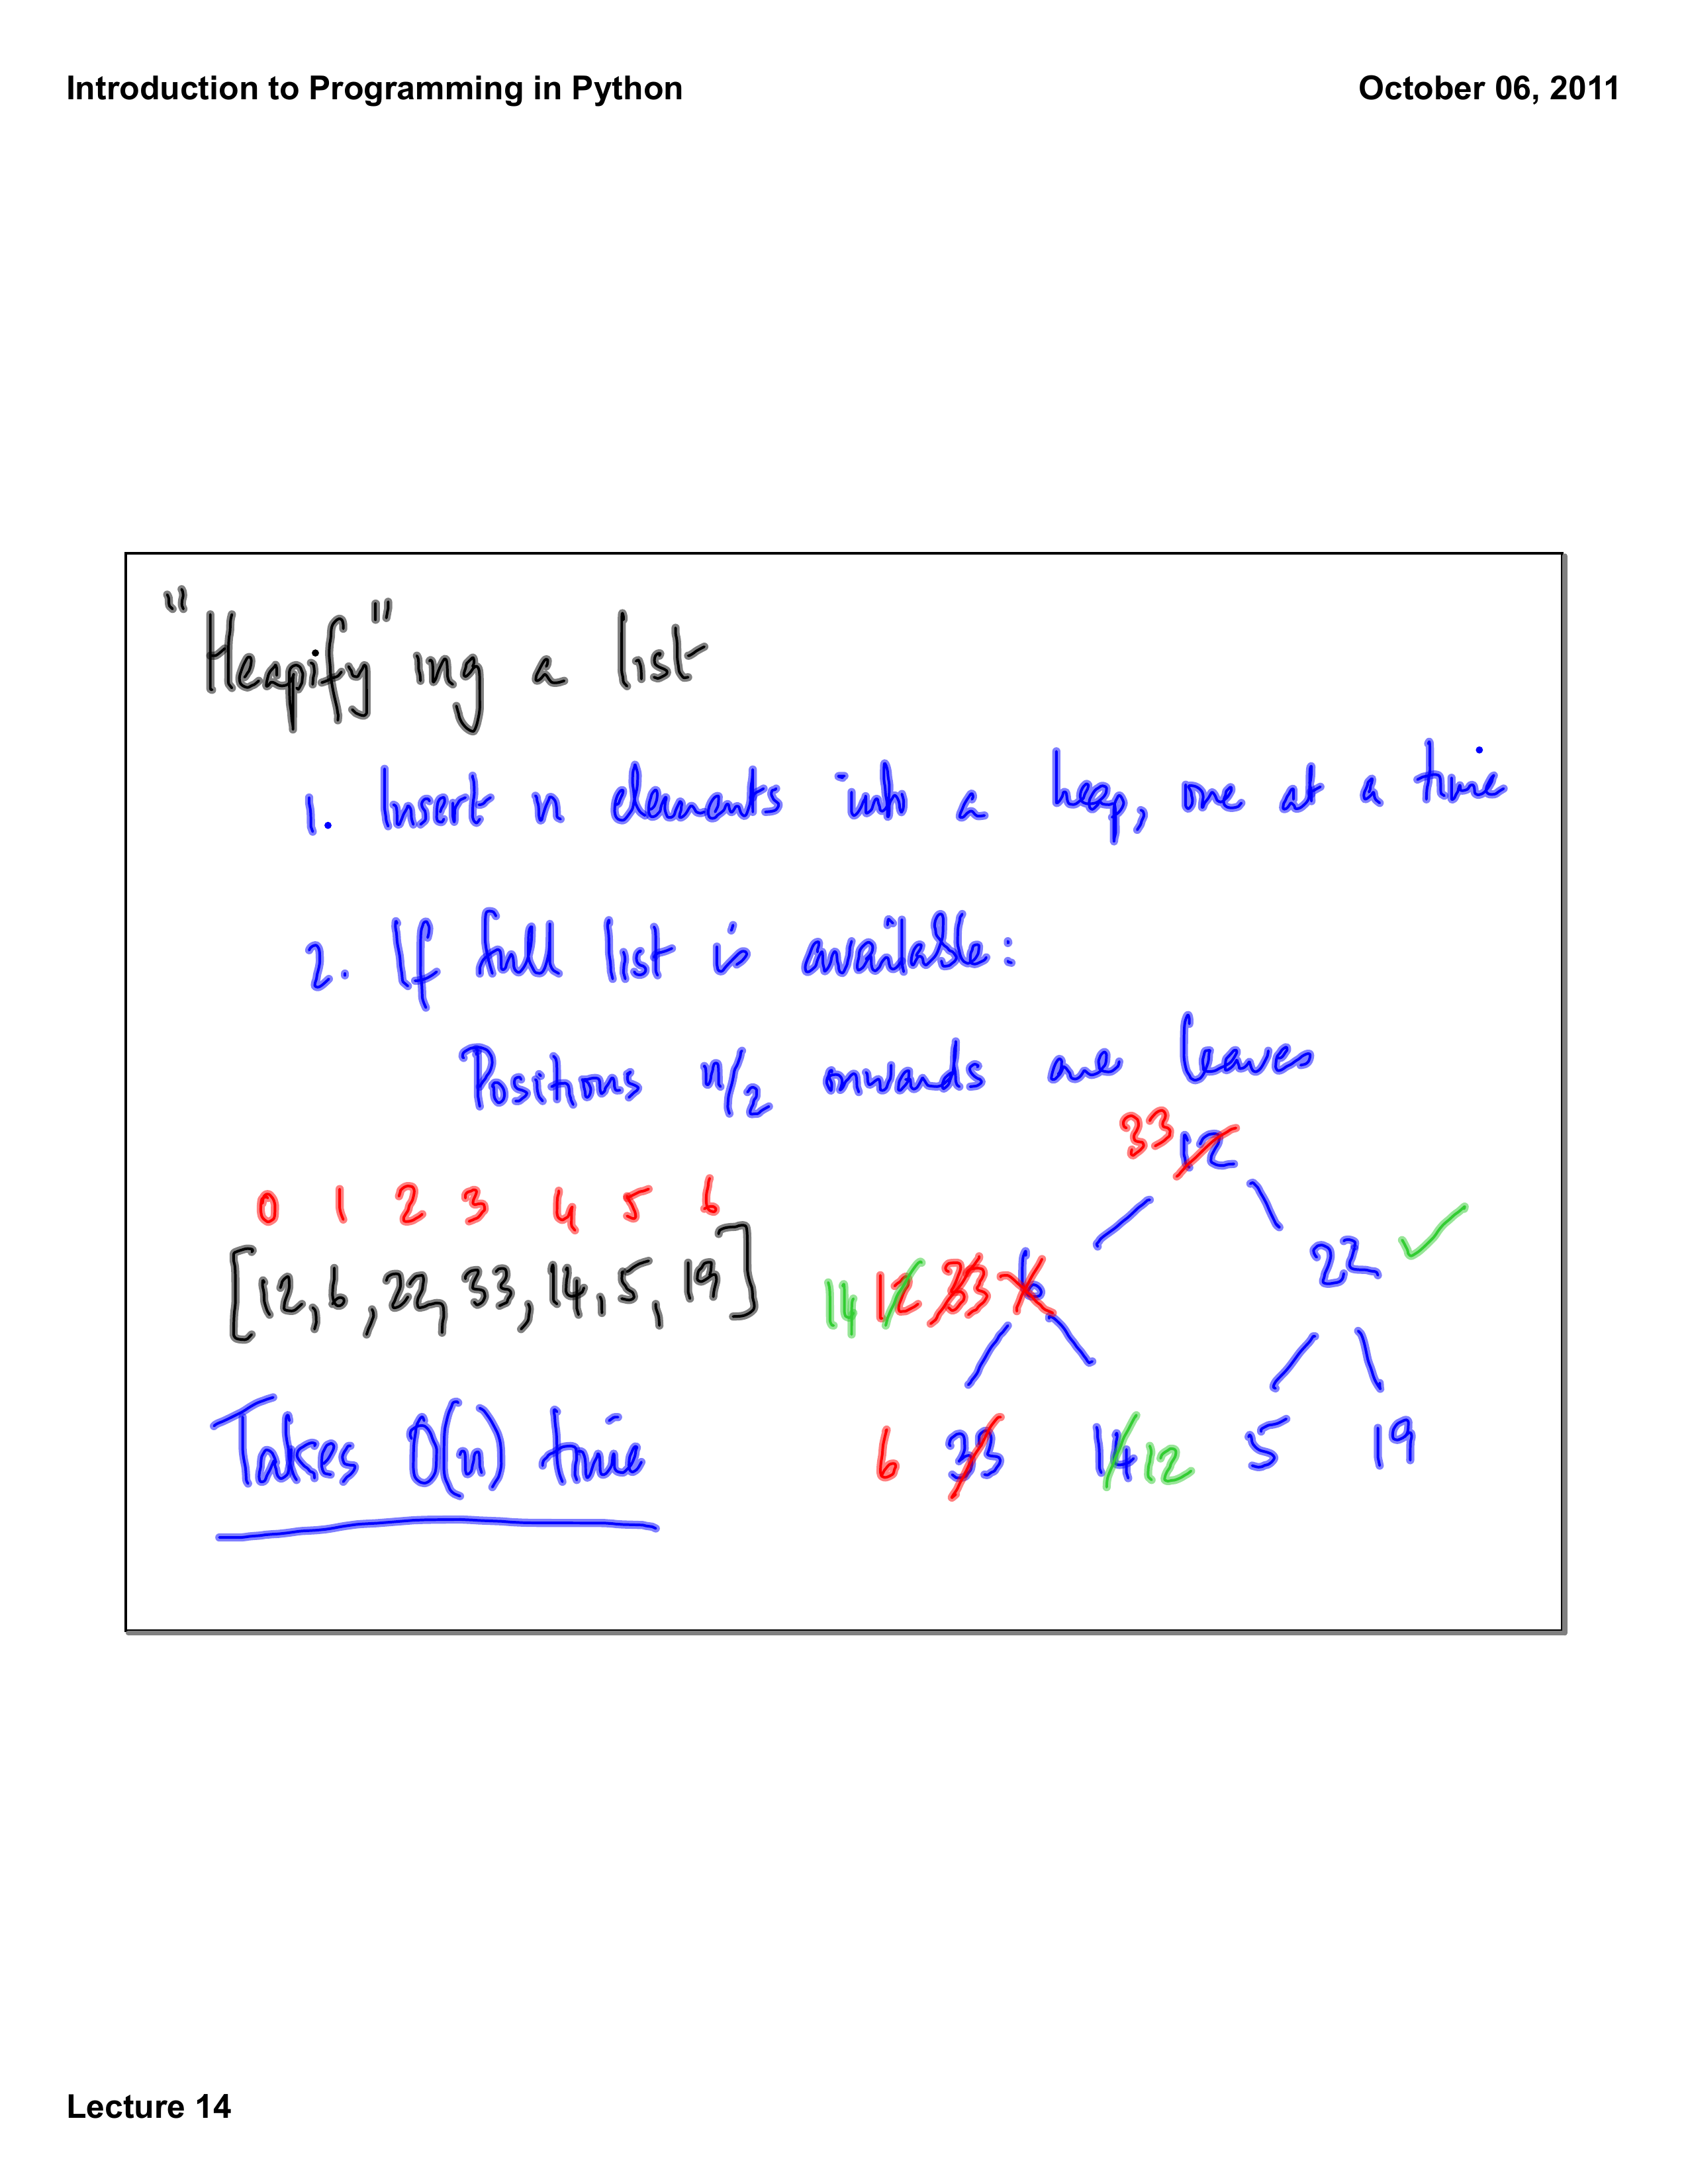 Introduction to Programming in Python October 06, 2011
"Heapify" ing a list
1. Insert n elements into a heap, one at a time
2. If full list is available:
Positions n/2 onwards are leaves
33 12
0 1 2 3 4 5 6
[12, 6, 22, 33, 14, 5, 19] 14 12 33 6 22 ✓
Takes O(n) time 6 33 14 12 5 19
Lecture 14